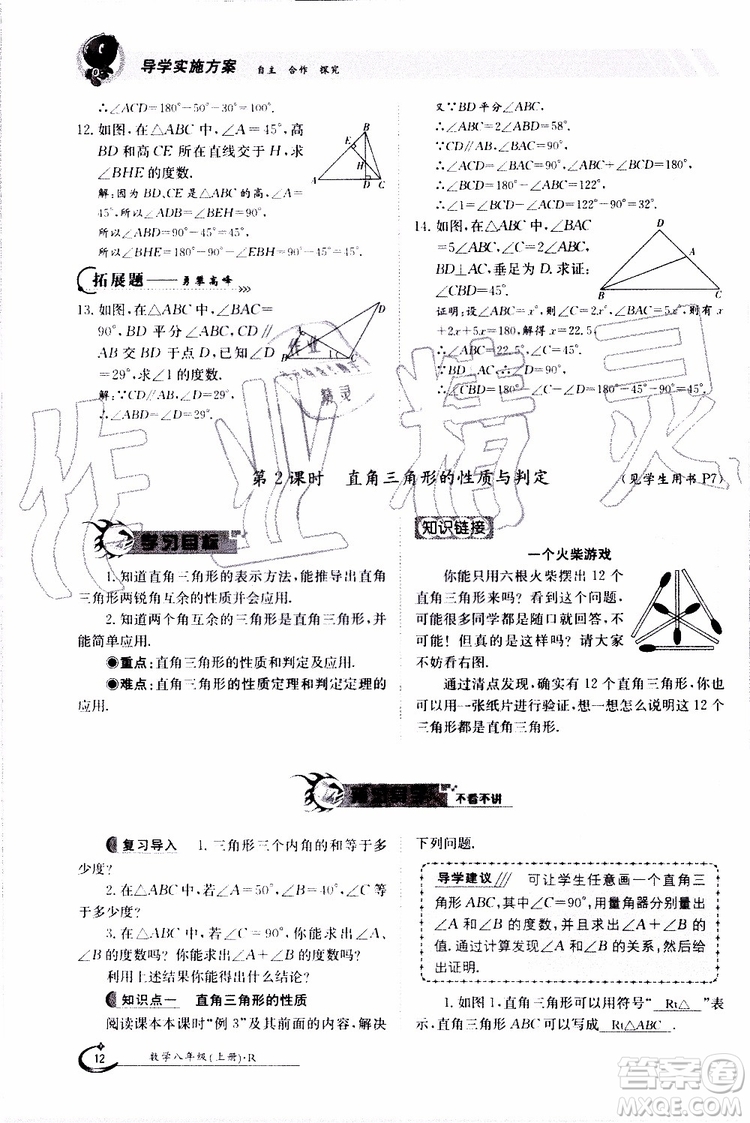 导学实施方案 自主 合作 探究
∴∠ACD=180°-50°-30°=100°.
12. 如图,在△ABC中,∠A=45°,高
BD和高CE所在直线交于H,求
∠BHE的度数.
解:因为BD、CE是△ABC的高,∠A=
45°,所以∠ADB=∠BEH=90°,
所以∠ABD=180°-90°-45°=45°,
所以∠BHE=180°-90°-∠EBH=90°-45°=45°.
拓展题——勇攀高峰
13. 如图,在△ABC中,∠BAC=
90°,BD平分∠ABC,CD∥
AB交BD于点D,已知∠D
=29°,求∠1的度数.
解:∵CD∥AB,∠D=29°,
∴∠ABD=∠D=29°.
又∵BD平分∠ABC,
∴∠ABC=2∠ABD=58°.
∵CD∥AB,∠BAC=90°,
∴∠ABC+∠BCD=180°,
∴∠BCD=180°-∠ABC=122°,
∴∠1=∠BCD-90°=122°-90°=32°.
14. 如图,在△ABC中,∠BAC
=5∠ABC,∠ABC=∠C,
BD⊥AC,垂足为D.求证:
∠CBD=3∠ABC.
证明:设∠ABC=x°,则∠C=x°,则有x
+x+5x=180,解得x=22.5,
∴∠ABC=22.5°,∠C=22.5°,
∴∠CBD=180°-∠D-∠C=180°-90°-
∴∠CBD=3∠ABC.
第2课时 直角三角形的性质与判定 (见学生用书P7)
学习目标
1. 知道直角三角形的表示方法,能推导出直角
三角形两锐角互余的性质并会应用.
2. 知道两个角互余的三角形是直角三角形,并
能简单应用.
●重点:直角三角形的性质和判定及应用.
●难点:直角三角形的性质定理和判定定理的
应用.
知识链接
一个火柴游戏
你能只用六根火柴摆出12个
直角三角形来吗?看到这个问题,
你可能会像多数人随口就回答:
不可能!但真的是这样吗?请大家
不妨看右图.
通过清点发现,确实有12个直角三角形,你可
以用一张纸片进行验证,想一想怎么说明这12个
三角形都是直角三角形?
不看不讲
复习导入 1.三角形三个内角的和等于多
少度?
2. 在△ABC中,若∠A=50°,∠B=40°,求∠C.
3. 在△ABC中,若∠C=90°,你能求出∠A、
∠B的度数吗?你能求出∠A+∠B的度数吗?
利用上述结果你能得出什么结论?
知识点一 直角三角形的性质
阅读课本本课时“例3”及其前面的内容,解决
下列问题.
导学建议 可让学生任意画一个直角三
角形ABC,其中∠C=90°,用量角器分别量出
∠A和∠B的度数,并求出∠A+∠B的
值.通过计算发现∠A和∠B的关系,然后给
出证明.
1. 如图1,直角三角形可以用符号“ Rt△ ”
来表示,直角三角形ABC可以写成 Rt△ABC .
12 数学八年级(上册)·R
作业精灵
答案圈
MXQE.COM